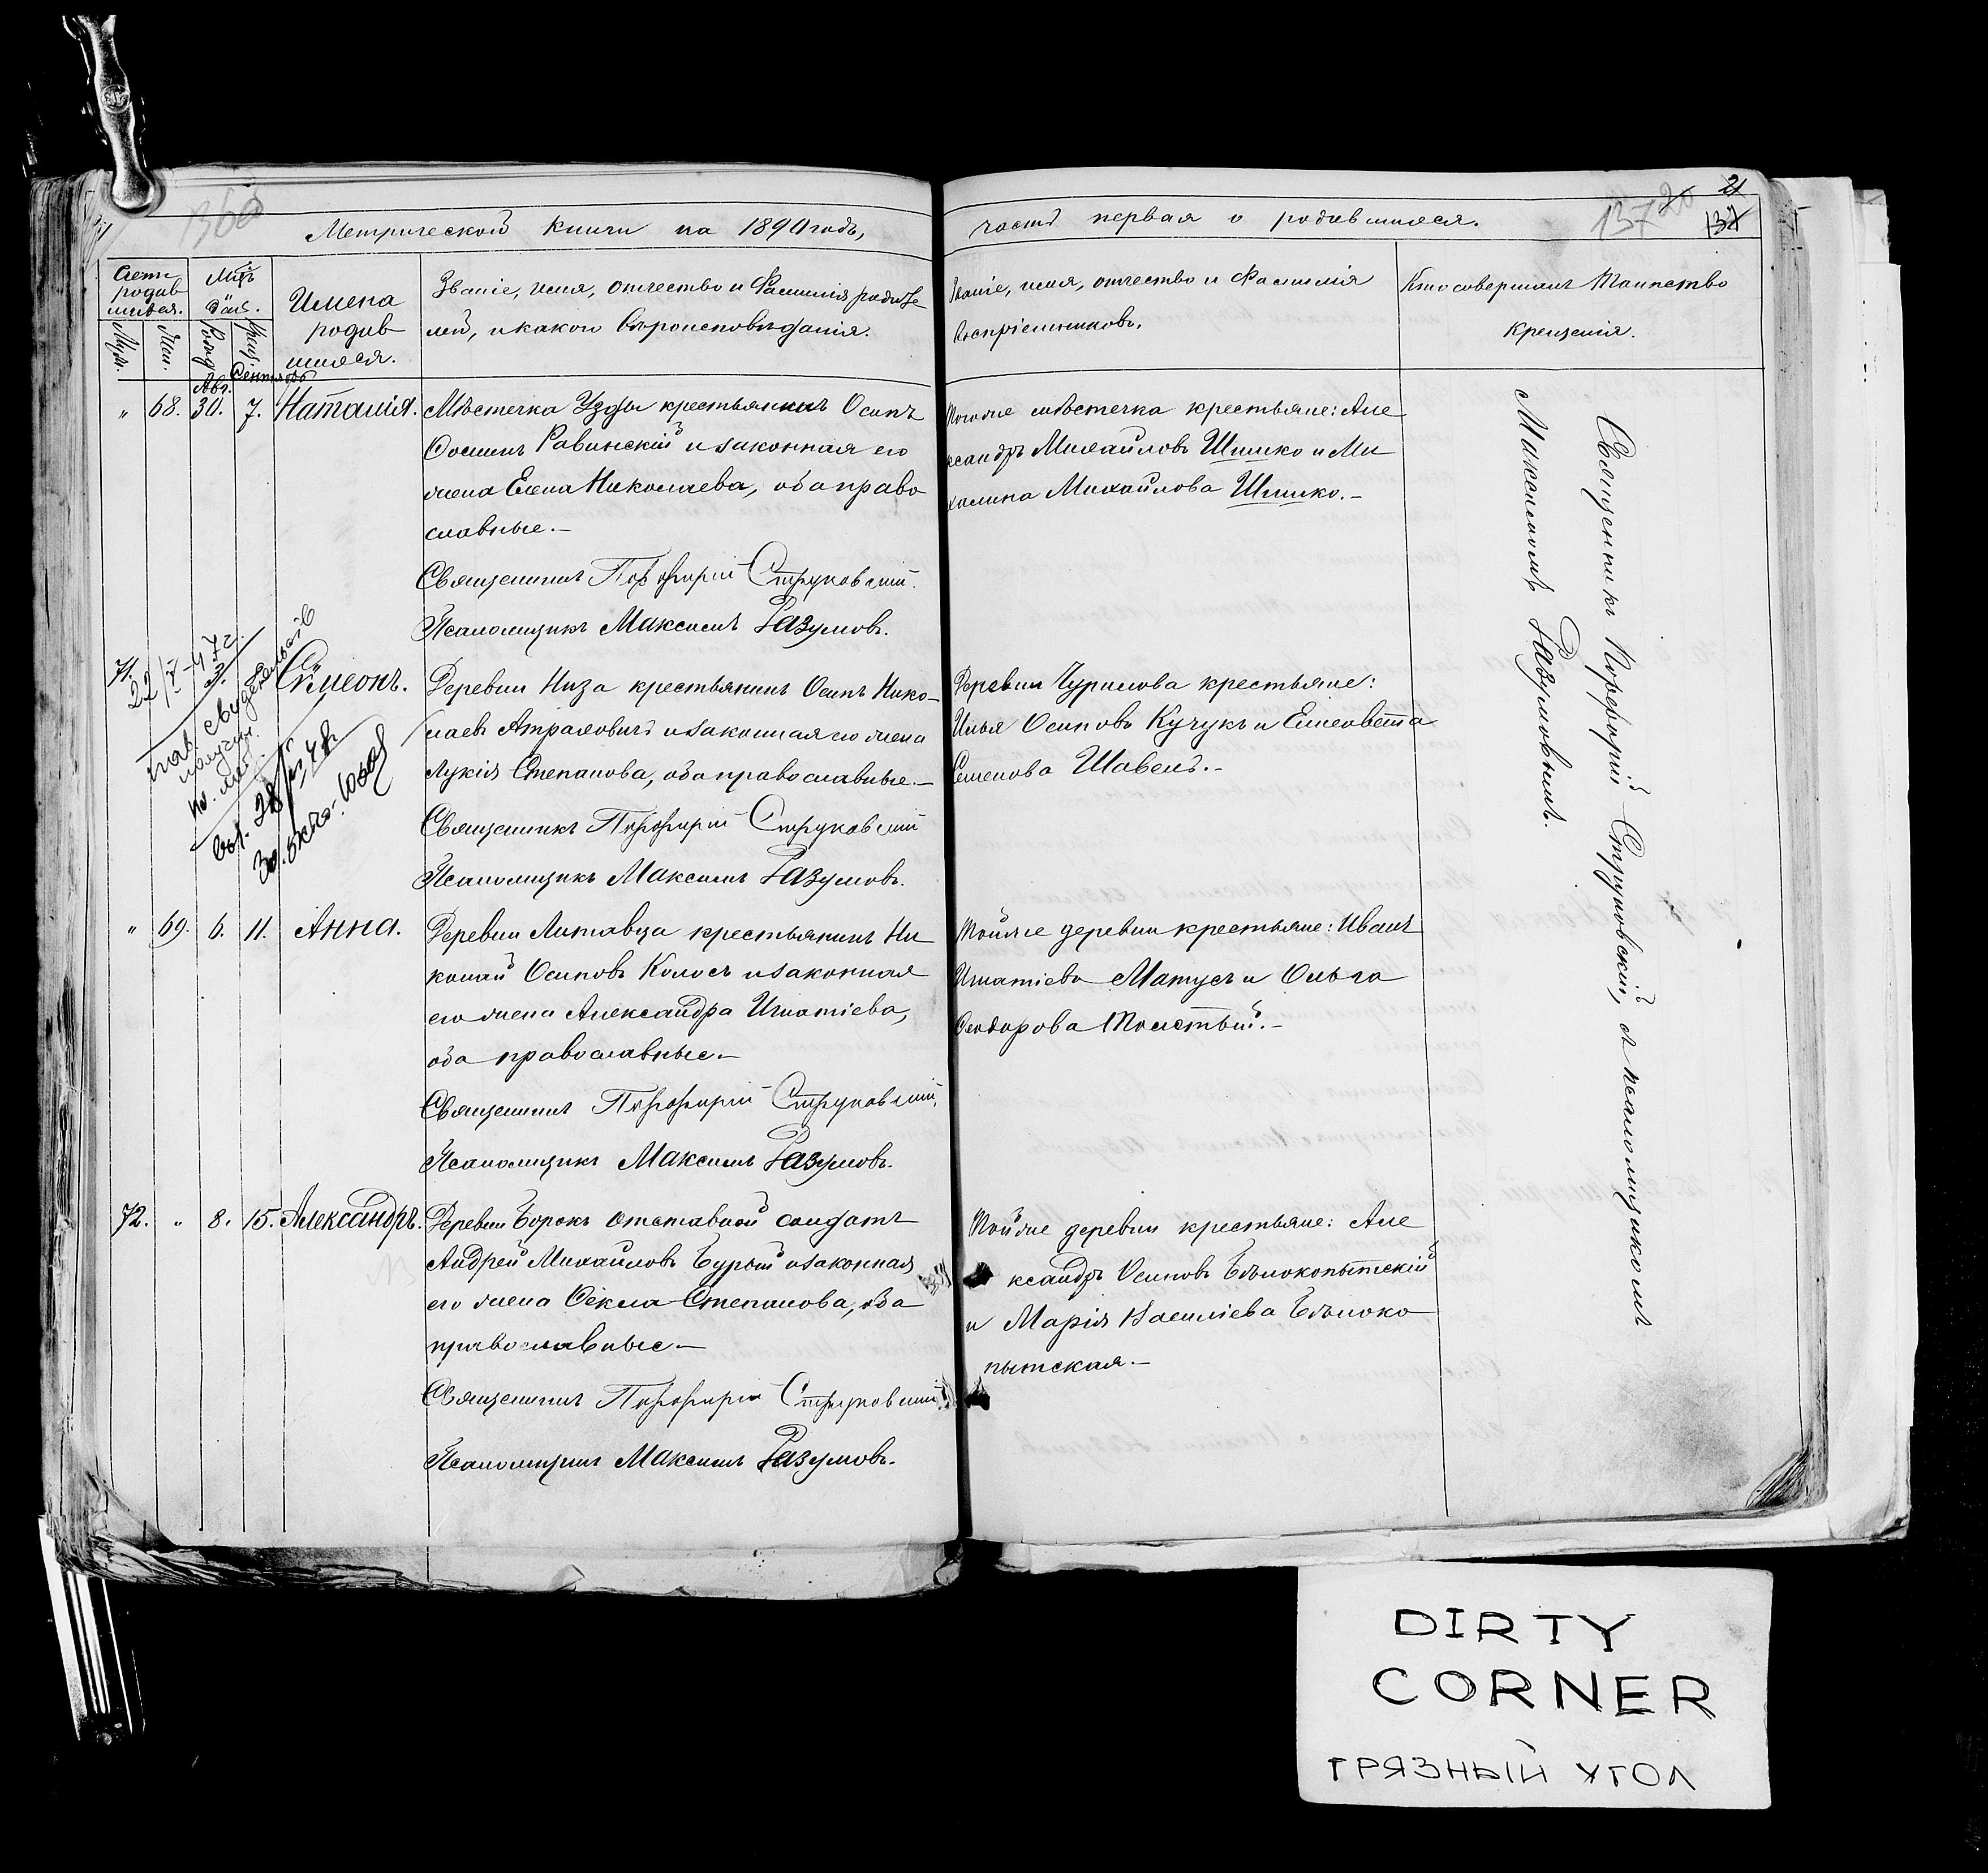 136
Метрической книги на 1890 годъ,
Счетъ родив
шихся.
Муж.
Жен.
Мѣс.
дни.
Рожд.
Крещ.
Имена
родив
шихся.
Званіе, имя, отчество и фамилія родите
лей, и какого вѣроисповѣданія.
"
68.
Авг.
30.
Сентябрь
7.
Наталія.
Мѣстечка Узды крестьянинъ Осипъ
Ѳоминъ Равинскій и законная его
жена Елена Николаева, оба право
славные.—
Священникъ Порфирій Струковскій.
Псаломщикъ Максимъ Разумовъ.
71.
Сѵмеонъ.
Деревни Низа крестьянинъ Осипъ Нико-
лаевъ Атраховичъ и законная его жена
Лукія Степанова, оба православные.—
Священникъ Порфирій Струковскій
Псаломщикъ Максимъ Разумовъ.
"
69.
6.
11.
Анна.
Деревни Литавца крестьянинъ Ни
колай Осиповъ Колосъ и законная
его жена Александра Игнатіева,
оба православные.—
Священникъ Порфирій Струковскій.
Псаломщикъ Максимъ Разумовъ.
72.
"
8.
15.
Александръ.
Деревни Борокъ отставной солдатъ
Андрей Михайловъ Бурый и законная
его жена Ѳекла Степанова, оба
православные.—
Священникъ Порфирій Струковскій
Псаломщикъ Максимъ Разумовъ.
21
137
20
137
часть первая о родившихся.
Званіе, имя, отчество и фамилія
воспріемниковъ.
Кто совершалъ таинство
крещенія.
Тогоже мѣстечка крестьяне: Але
ксандръ Михайловъ Шишко и Ми
халина Михайлова Шишко.—
Деревни Чурилова крестьяне:
Илья Осиповъ Кучукъ и Елисовета
Семенова Шавель.—
Тойже деревни крестьяне: Иванъ
Игнатіевъ Матусъ и Ольга
Ѳеодорова Толстый.—
Тойже деревни крестьяне: Але
ксандръ Осиповъ Бѣлокопытскій
и Марія Василіева Бѣлоко
пытская.—
Священникъ Порфирій Струковскій, съ псаломщикомъ
Максимомъ Разумовымъ.
DIRTY
CORNER
ГРЯЗНЫЙ УГОЛ